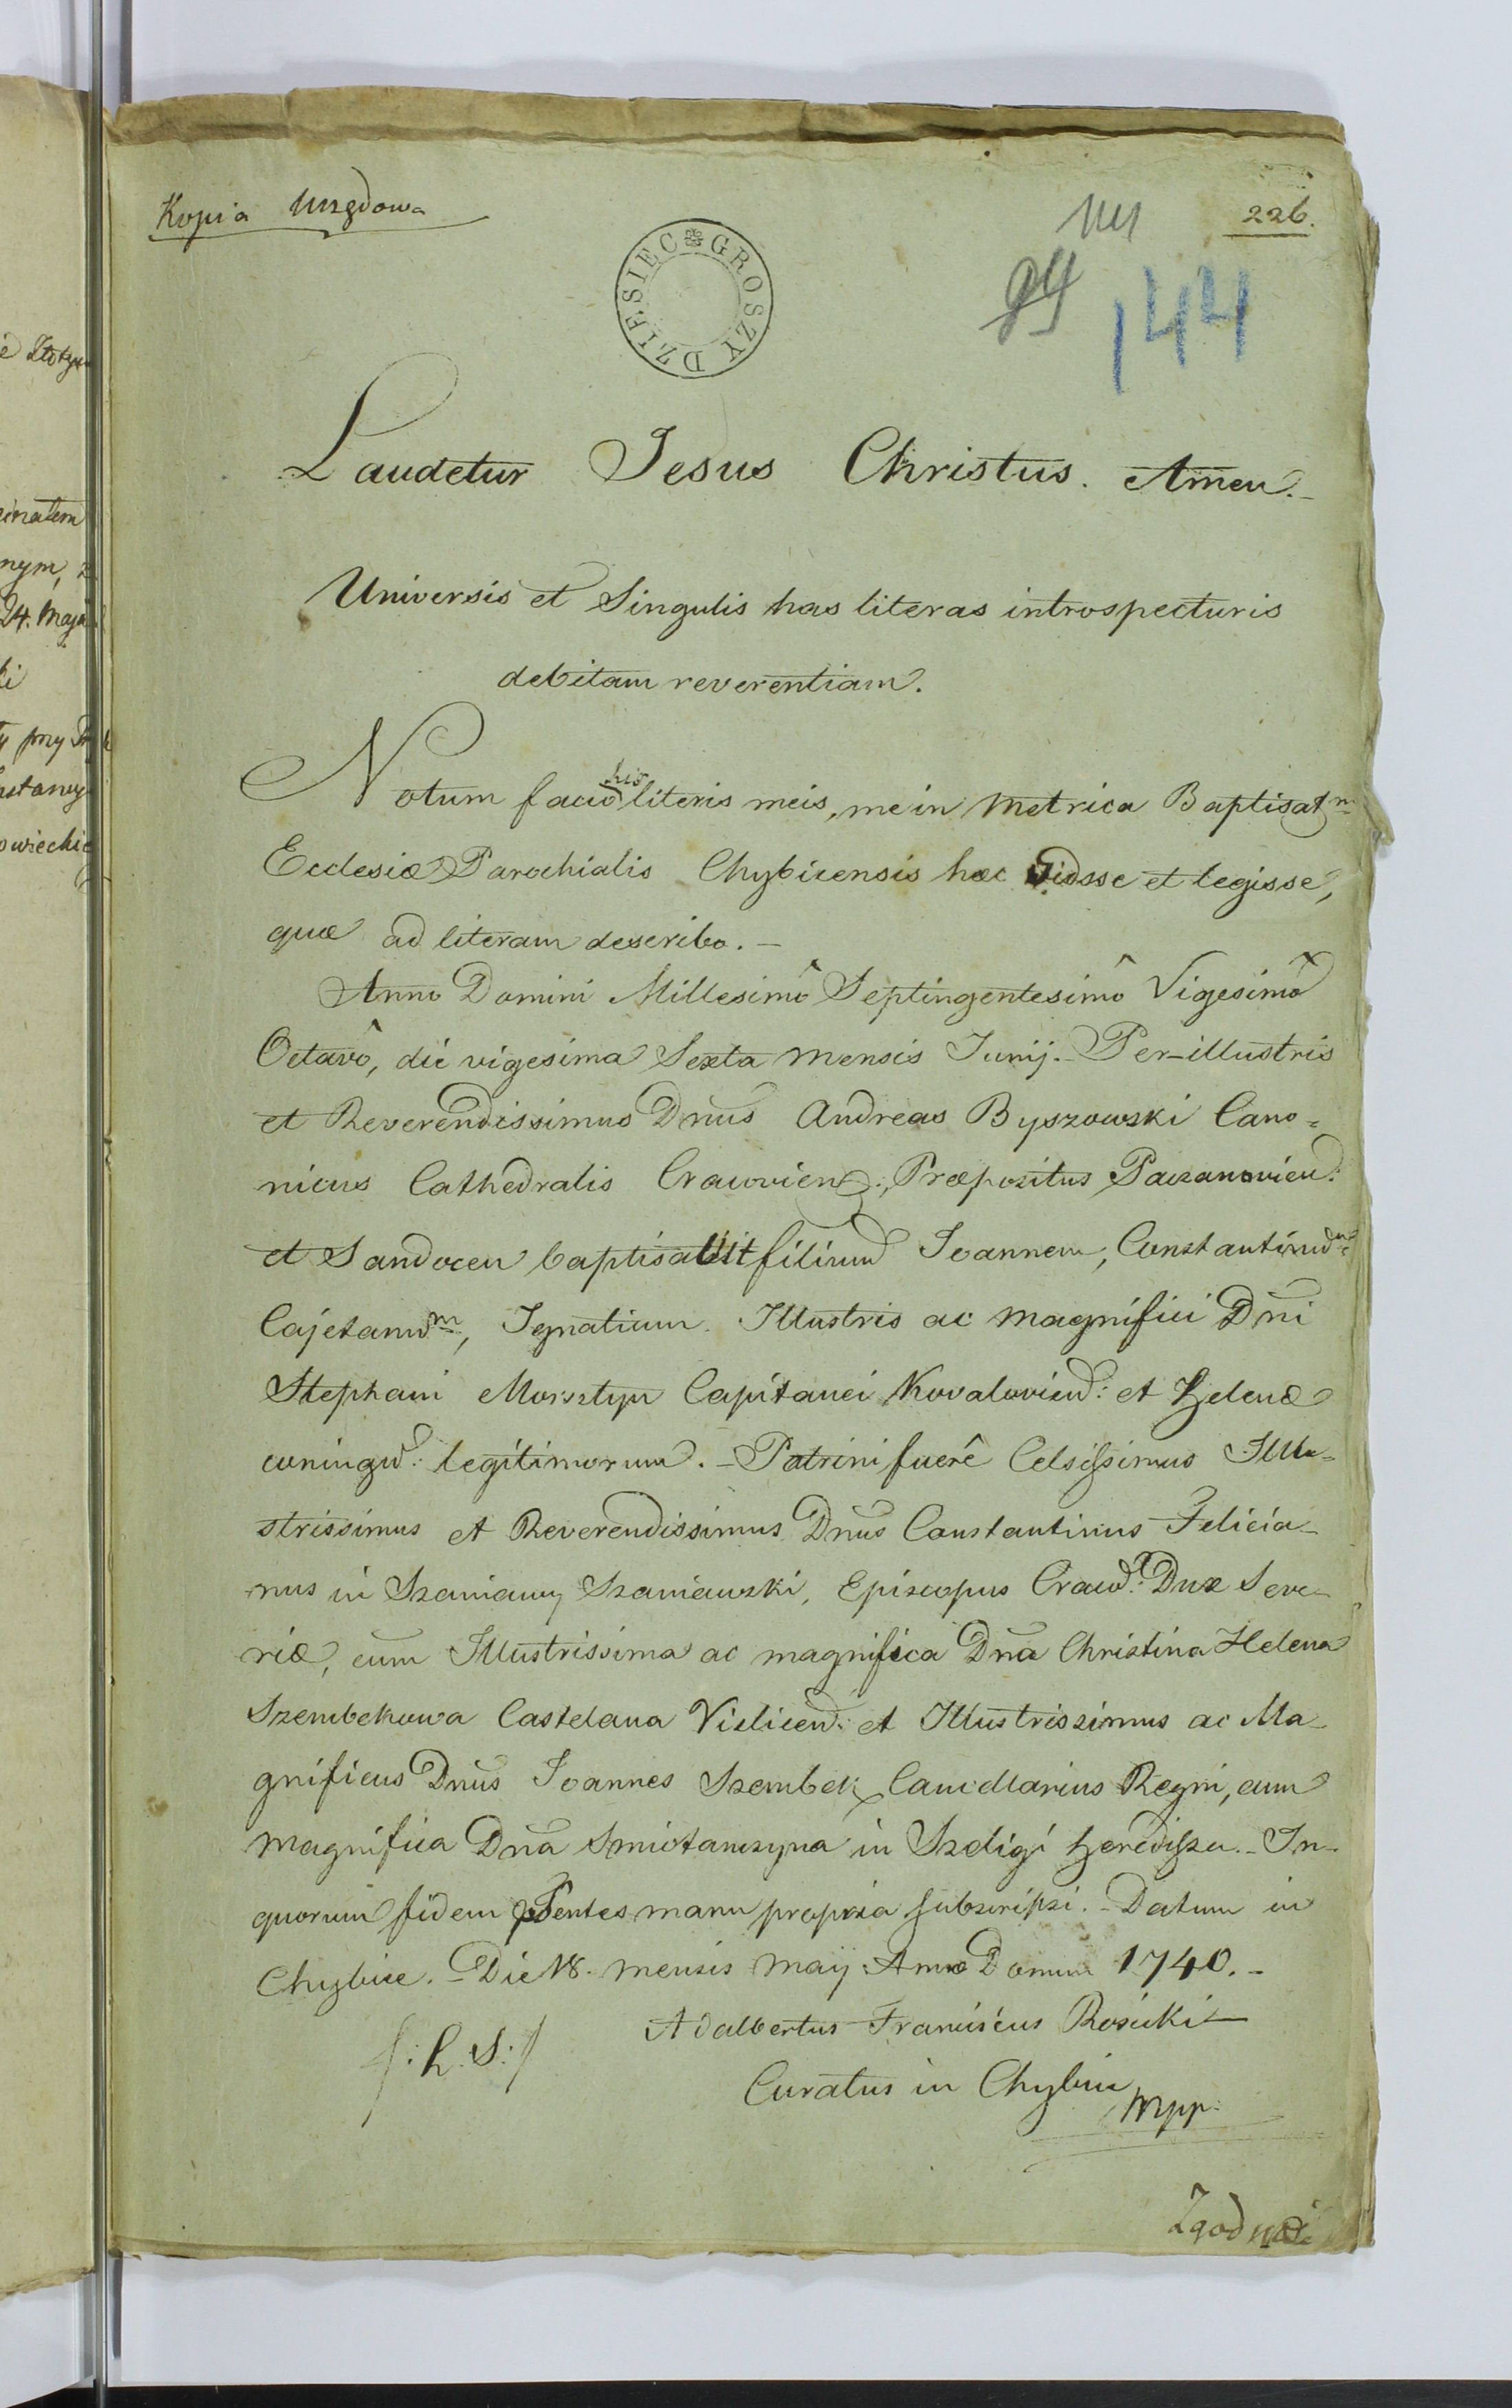 Kopia Urzędowa
226.
144
DZIESIEC GROSZY
Laudetur Jesus Christus. Amen.-
Universis et Singulis has literas introspecturis
debitam reverentiam.
Notum facio his literis meis, me in Metrica Baptisat
Ecclesiæ Parochialis Chybicensis hæc vidsse et legisse,
quæ ad literam describo.-
Anno Domini Millesimô Septingentesimô Vigesimô
Octavô, die vigesima Sexta mensis Junij.- Per-illustris
et Reverendissimus Dnus Andreas Byszowski Cano=
nicus Cathedralis Cracovien:, Præpositus Paczanovien:
et Sandocen baptisavit filium Joannem, Constantinum
Cajetanum, Ignatium. Illustris ac Magnifici Dni
Stephani Morsztyn Capitanei Kovalovien: et Helenæ
coniugu: legitimorum.- Patrini fuerê Celsissimus Illu=
strissimus et Reverendissimus Dnus Constantinus Felicia-
nus in Szaniawy Szaniawski, Episcopus Crac: Dux Seve-
riæ, cum Illustrissima ac magnifica Dna Christina Helena
Szembekowa Castelana Vislicen: et Illustrissimus ac Ma-
gnificus Dnus Joannes Szembek Cancellarius Regni, cum
Magnifica Dna in Szeligi Heredissa.- In-
quorum fidem pntes manu propria subscripsi.- Datum in
Chybice.- Die 18. mensis Maij Anno Domini 1740.-
Adalbertus Franciscus Rosicki
/:L.S:/
Curatus in Chybice
mpp.
Zgodność